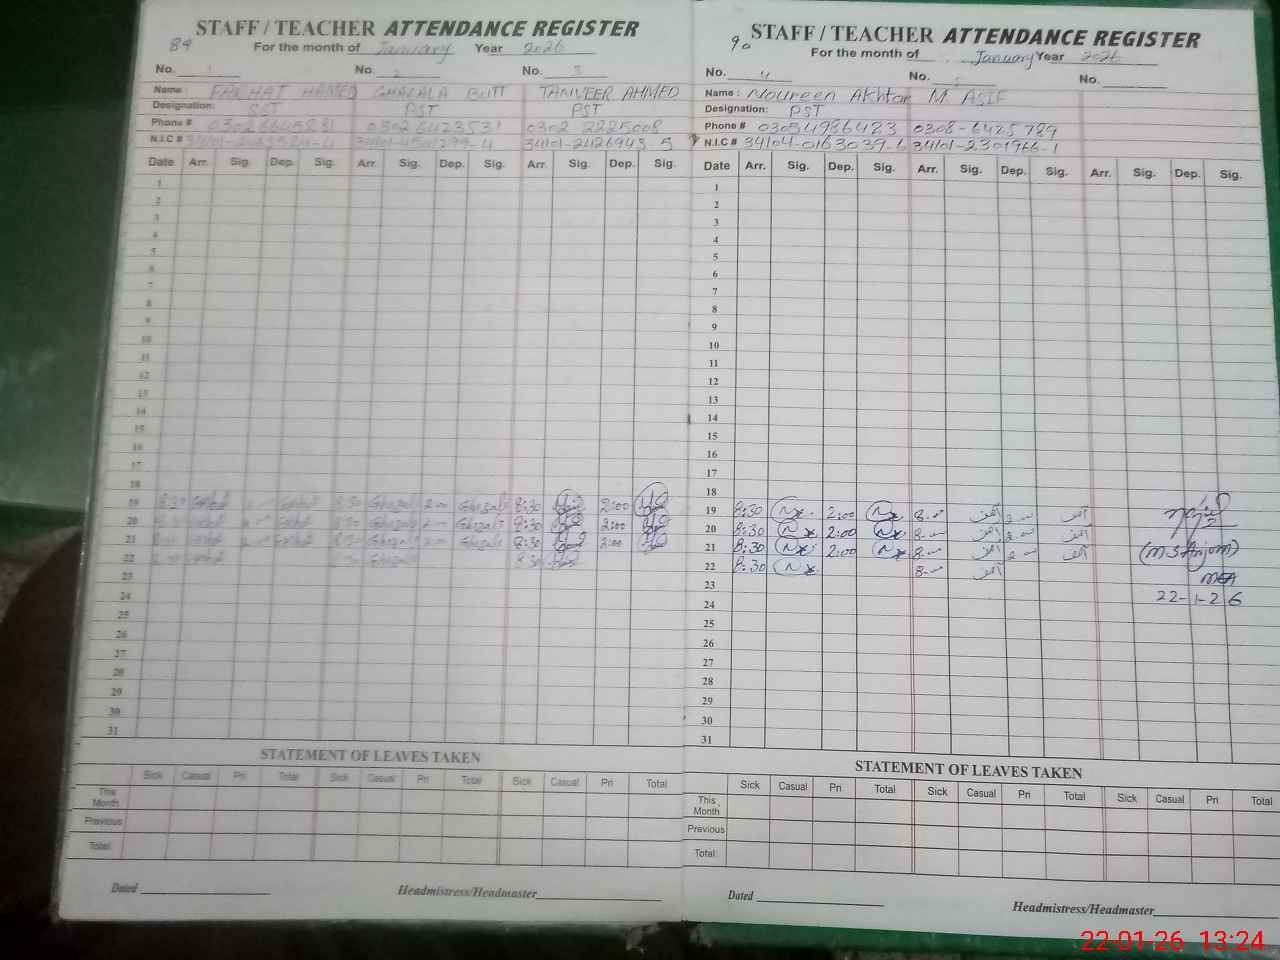 STAFF / TEACHER ATTENDANCE REGISTER
89
For the month of January Year 2026
No. 1 No. 2 No. 3
Name : FARHAT HAMED GHAZALA BUTT TANVEER AHMED
Designation: SST PST PST
Phone # 0302 6423531 0302 2225008
N.I.C #
Date Arr. Sig. Dep. Sig. Arr. Sig. Dep. Sig. Arr. Sig. Dep. Sig.
1
2
3
4
5
6
7
8
9
10
11
12
13
14
15
16
17
18
19 8:30 8:30 Ghazala 2:00 Ghazala 8:30 2:00
20 8:30 8:30 Ghazala 2:00 Ghazala 8:30 2:00
21 8:30 8:30 Ghazala 2:00 Ghazala 8:30 2:00
22 8:30 8:30 Ghazala 8:30
23
24
25
26
27
28
29
30
31
STATEMENT OF LEAVES TAKEN
Sick Casual Pri Total Sick Casual Pri Total Sick Casual Pri Total
This Month
Previous
Total:
Dated Headmistress/Headmaster
STAFF / TEACHER ATTENDANCE REGISTER
90
For the month of January Year 2026
No. 4 No. 5 No.
Name : Noureen Akhtar M ASIF
Designation: PST
Phone # 03054986423 0308-6425789
N.I.C # 34104-0163039-6 34101-2301966-1
Date Arr. Sig. Dep. Sig. Arr. Sig. Dep. Sig. Arr. Sig. Dep. Sig.
1
2
3
4
5
6
7
8
9
10
11
12
13
14
15
16
17
18
19 8:30 2:00 8-00 آصف 2-00 آصف
20 8:30 2:00 8-00 آصف 2-00 آصف
21 8:30 2:00 8-00 آصف 2-00 آصف
(M.S Anjom)
22 8:30 8-00 آصف
23 MEA
24 22-1-26
25
26
27
28
29
30
31
STATEMENT OF LEAVES TAKEN
Sick Casual Pri Total Sick Casual Pri Total Sick Casual Pri Total
This Month
Previous
Total:
Dated Headmistress/Headmaster
22-01-26 13:24